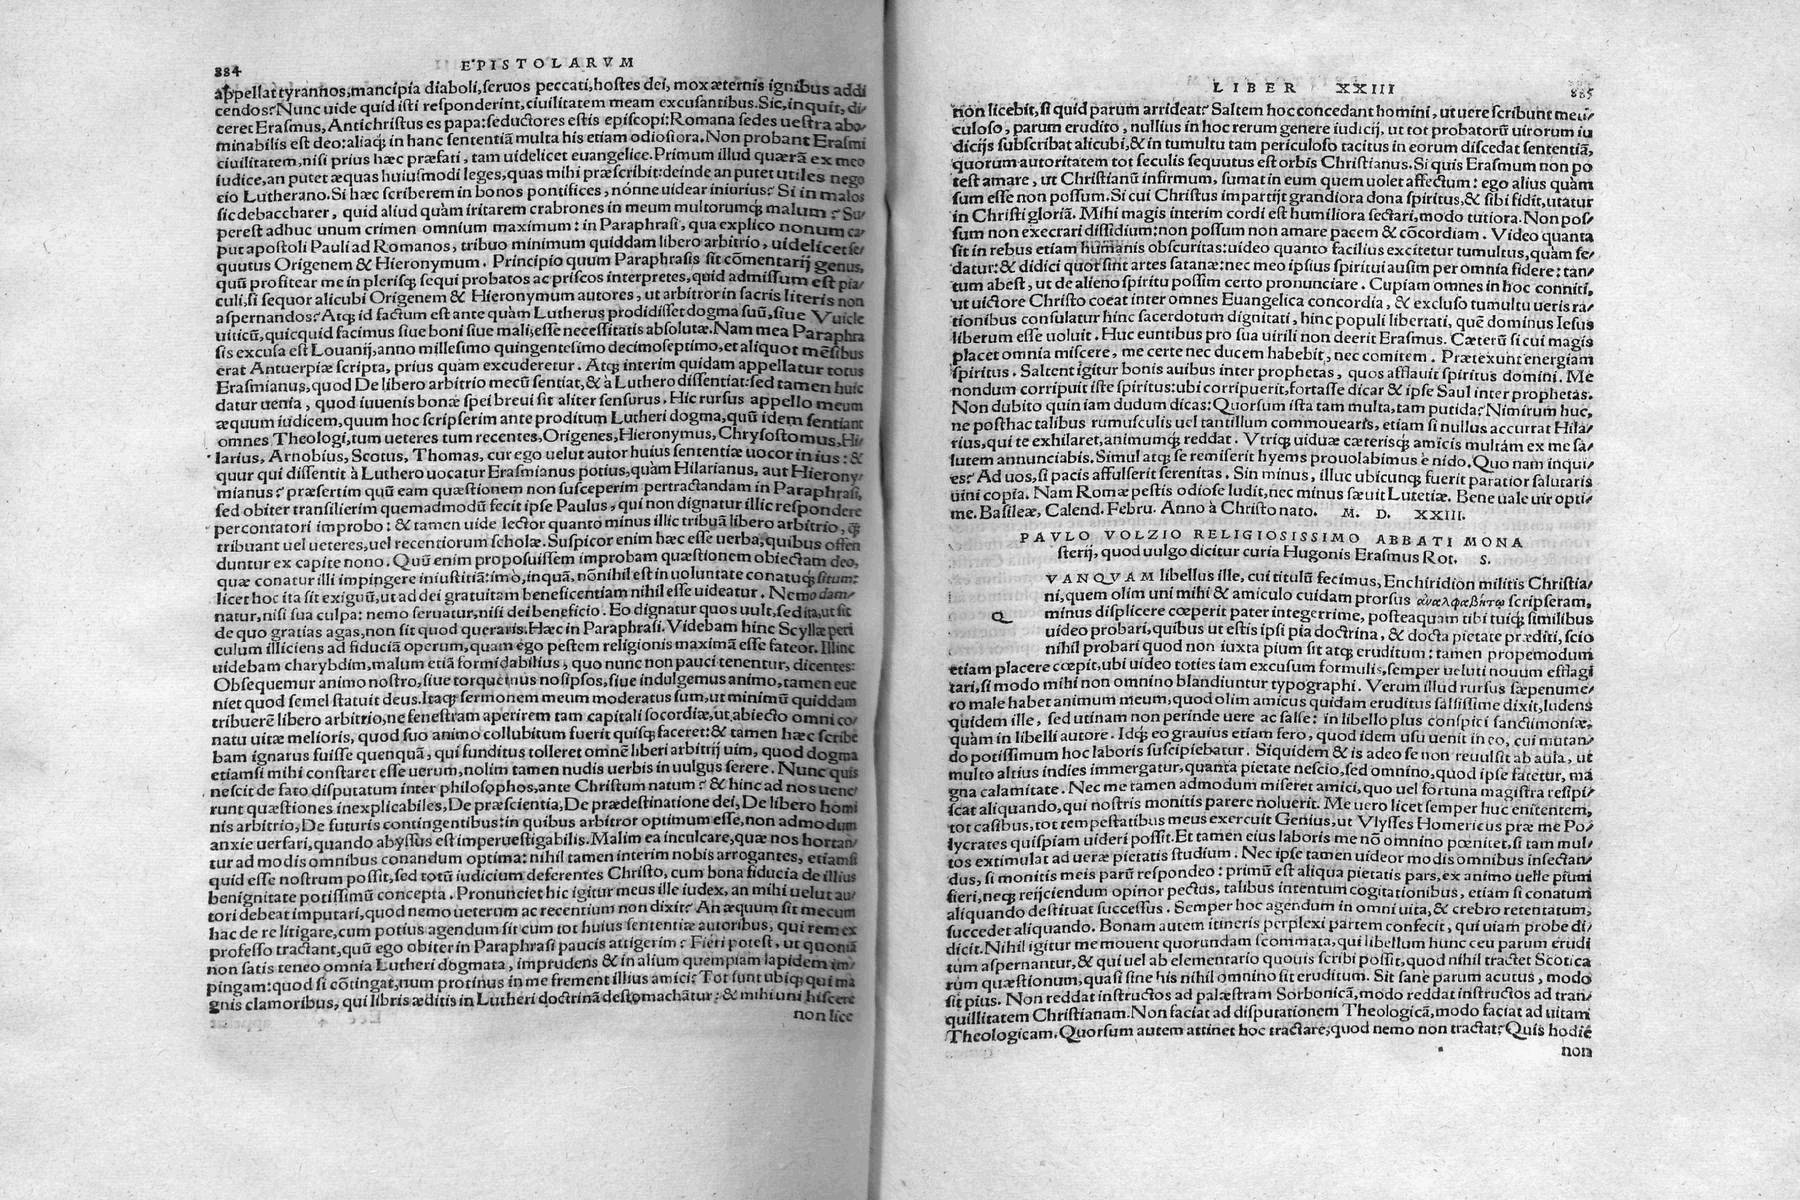 884 EPISTOLARVM
appellat tyrannos, mancipia diaboli, seruos peccati, hostes dei, mox æternis ignibus addi
cendos? Nunc uide quid isti responderint, ciuilitatem meam excusantibus. Sic, inquit, di/
ceret Erasmus, Antichristus es papa: seductores estis episcopi: Romana sedes uestra abo/
minabilis est deo: aliaq́; in hanc sententiã multa his etiam odiosiora. Non probant Erasmi
ciuilitatem, nisi prius hæc præfati, tam uidelicet euangelice. Primum illud quærã ex meo
iudice, an putet æquas huiusmodi leges, quas mihi præscribit: deinde an putet utiles nego
cio Lutherano. Si hæc scriberem in bonos pontifices, nónne uidear iniurius? Si in malos
sic debaccharer, quid aliud quàm iritarem crabrones in meum multorumq́; malum? Su/
perest adhuc unum crimen omnium maximum: in Paraphrasi, qua explico nonum ca/
put apostoli Pauli ad Romanos, tribuo minimum quiddam libero arbitrio, uidelicet se/
quutus Origenem & Hieronymum. Principio quum Paraphrasis sit cõmentarij genus,
quũ profitear me in plerisq; sequi probatos ac priscos interpretes, quid admissum est pia/
culi, si sequor alicubi Origenem & Hieronymum autores, ut arbitror in sacris literis non
aspernandos? Atq; id factum est ante quàm Lutherus prodidisset dogma suũ, siue Vuicle
uiticũ, quicquid facimus siue boni siue mali, esse necessitatis absolutæ. Nam mea Paraphra
sis excusa est Louanij, anno millesimo quingentesimo decimoseptimo, et aliquot mẽsibus
erat Antuerpiæ scripta, prius quàm excuderetur. Atq; interim quidam appellatur totus
Erasmianus, quod De libero arbitrio mecũ sentiat, & à Luthero dissentiat: sed tamen huic
datur uenia, quod iuuenis bonæ spei breui sit aliter sensurus. Hic rursus appello meum
æquum iudicem, quum hoc scripserim ante proditum Lutheri dogma, quũ idem sentiant
omnes Theologi, tum ueteres tum recentes, Origenes, Hieronymus, Chrysostomus, Hi/
larius, Arnobius, Scotus, Thomas, cur ego uelut autor huius sententiæ uocor in ius: &
quur qui dissentit à Luthero uocatur Erasmianus potius, quàm Hilarianus, aut Hierony/
mianus? præsertim quũ eam quæstionem non susceperim pertractandam in Paraphrasi,
sed obiter transilierim quemadmodũ fecit ipse Paulus, qui non dignatur illic respondere
percontatori improbo: & tamen uide lector quanto minus illic tribuã libero arbitrio, q̃
tribuant uel ueteres, uel recentiorum scholæ. Suspicor enim hæc esse uerba, quibus offen
duntur ex capite nono. Quũ enim proposuissem improbam quæstionem obiectam deo,
quæ conatur illi impingere iniustitiã: imò, inquã, nõnihil est in uoluntate conatuq́; situm:
licet hoc ita sit exiguũ, ut ad dei gratuitam beneficentiam nihil esse uideatur. Nemo dam/
natur, nisi sua culpa: nemo seruatur, nisi dei beneficio. Eo dignatur quos uult, sed ita, ut sit
de quo gratias agas, non sit quod queraris. Hæc in Paraphrasi. Videbam hinc Scyllæ peri
culum illiciens ad fiduciã operum, quam ego pestem religionis maximã esse fateor. Illinc
uidebam charybdim, malum etiã formidabilius, quo nunc non pauci tenentur, dicentes:
Obsequemur animo nostro, siue torquemus nosipsos, siue indulgemus animo, tamen eue
niet quod semel statuit deus. Itaq; sermonem meum moderatus sum, ut minimũ quiddam
tribuerẽ libero arbitrio, ne fenestram aperirem tam capitali socordiæ, ut abiecto omni co/
natu uitæ melioris, quod suo animo collubitum fuerit quisq; faceret: & tamen hæc scribe
bam ignarus fuisse quenquã, qui funditus tolleret omnẽ liberi arbitrij uim, quod dogma
etiamsi mihi constaret esse uerum, nolim tamen nudis uerbis in uulgus serere. Nunc quis
nescit de fato disputatum inter philosophos, ante Christum natum? & hinc ad nos uene/
runt quæstiones inexplicabiles, De præscientia, De prædestinatione dei, De libero homi
nis arbitrio, De futuris contingentibus: in quibus arbitror optimum esse, non admodum
anxie uersari, quando abyssus est imperuestigabilis. Malim ea inculcare, quæ nos hortan/
tur ad modis omnibus conandum optima: nihil tamen interim nobis arrogantes, etiamsi
quid esse nostrum possit, sed totũ iudicium deferentes Christo, cum bona fiducia de illius
benignitate potissimũ concepta. Pronunciet hic igitur meus ille iudex, an mihi uelut au/
tori debeat imputari, quod nemo ueterum ac recentium non dixit? An æquum sit mecum
hac de re litigare, cum potius agendum sit cum tot huius sententiæ autoribus, qui rem ex
professo tractant, quũ ego obiter in Paraphrasi paucis attigerim? Fieri potest, ut quoniã
non satis teneo omnia Lutheri dogmata, imprudens & in alium quempiam lapidem im/
pingam: quod si cõtingat, num protinus in me frement illius amici? Tot sunt ubiq; qui ma
gnis clamoribus, qui libris æditis in Lutheri doctrinã destomachãtur: & mihi uni hiscere
non lice
LIBER XXIII 885
non licebit, si quid parum arrideat? Saltem hoc concedant homini, ut uere scribunt meti/
culoso, parum erudito, nullius in hoc rerum genere iudicij, ut tot probatorũ uirorum iu
dicijs subscribat alicubi, & in tumultu tam periculoso tacitus in eorum discedat sententiã,
quorum autoritatem tot seculis sequutus est orbis Christianus. Si quis Erasmum non po
test amare, ut Christianũ infirmum, sumat in eum quem uolet affectum: ego alius quàm
sum esse non possum. Si cui Christus impartijt grandiora dona spiritus, & sibi fidit, utatur
in Christi gloriã. Mihi magis interim cordi est humiliora sectari, modo tutiora. Non pos/
sum non execrari dissidium: non possum non amare pacem & cõcordiam. Video quanta
sit in rebus etiam humanis obscuritas: uideo quanto facilius excitetur tumultus, quàm se/
datur: & didici quot sint artes satanæ: nec meo ipsius spiritui ausim per omnia fidere: tan/
tum abest, ut de alieno spiritu possim certo pronunciare. Cupiam omnes in hoc conniti,
ut uictore Christo coeat inter omnes Euangelica concordia, & excluso tumultu ueris ra/
tionibus consulatur hinc sacerdotum dignitati, hinc populi libertati, quẽ dominus Iesus
liberum esse uoluit. Huc euntibus pro sua uirili non deerit Erasmus. Cæterũ si cui magis
placet omnia miscere, me certe nec ducem habebit, nec comitem. Prætexunt energiam
spiritus. Saltent igitur bonis auibus inter prophetas, quos afflauit spiritus domini. Me
nondum corripuit iste spiritus: ubi corripuerit, fortasse dicar & ipse Saul inter prophetas.
Non dubito quin iam dudum dicas: Quorsum ista tam multa, tam putida? Nimirum huc,
ne posthac talibus rumusculis uel tantillum commouearis, etiam si nullus accurrat Hila/
rius, qui te exhilaret, animumq́; reddat. Vtriq; uiduæ cæterisq́; amicis multam ex me sa/
lutem annunciabis. Simul atq; se remiserit hyems prouolabimus è nido. Quo nam inqui/
es? Ad uos, si pacis affulserit serenitas. Sin minus, illuc ubicunq; fuerit paratior salutaris
uini copia. Nam Romæ pestis odiose ludit, nec minus sæuit Lutetiæ. Bene uale uir opti/
me. Basileæ, Calend. Febru. Anno à Christo nato. M. D. XXIII.
PAVLO VOLZIO RELIGIOSISSIMO ABBATI MONA
sterij, quod uulgo dicitur curia Hugonis Erasmus Rot. S.
QVANQVAM libellus ille, cui titulũ fecimus, Enchiridion militis Christia/
ni, quem olim uni mihi & amiculo cuidam prorsus ἀναλφαβήτῳ scripseram,
minus displicere cœperit pater integerrime, posteaquam tibi tuiq́; similibus
uideo probari, quibus ut estis ipsi pia doctrina, & docta pietate præditi, scio
nihil probari quod non iuxta pium sit atq; eruditum: tamen propemodum
etiam placere cœpit, ubi uideo toties iam excusum formulis, semper ueluti nouum efflagi
tari, si modo mihi non omnino blandiuntur typographi. Verum illud rursus sæpenume/
ro male habet animum meum, quod olim amicus quidam eruditus salsissime dixit, ludens
quidem ille, sed utinam non perinde uere ac salse: in libello plus conspici sanctimoniæ,
quàm in libelli autore. Idq; eo grauius etiam fero, quod idem usu uenit in eo, cui mutan/
do potissimum hoc laboris suscipiebatur. Siquidem & is adeo se non reuulsit ab aula, ut
multo altius indies immergatur, quanta pietate nescio, sed omnino, quod ipse fatetur, ma
gna calamitate. Nec me tamen admodum miseret amici, quo uel fortuna magistra resipi/
scat aliquando, qui nostris monitis parere noluerit. Me uero licet semper huc enitentem,
tot casibus, tot tempestatibus meus exercuit Genius, ut Vlysses Homericus præ me Po/
lycrates quispiam uideri possit. Et tamen eius laboris me nõ omnino pœnitet, si tam mul/
tos extimulat ad ueræ pietatis studium. Nec ipse tamen uideor modis omnibus insectan/
dus, si monitis meis parũ respondeo: primũ est aliqua pietatis pars, ex animo uelle pium
fieri, neq; reijciendum opinor pectus, talibus intentum cogitationibus, etiam si conatum
aliquando destituat successus. Semper hoc agendum in omni uita, & crebro retentatum,
succedet aliquando. Bonam autem itineris perplexi partem confecit, qui uiam probe di/
dicit. Nihil igitur me mouent quorundam scommata, qui libellum hunc ceu parum erudi
tum aspernantur, & qui uel ab elementario quouis scribi possit, quod nihil tractet Scotica
rum quæstionum, quasi sine his nihil omnino sit eruditum. Sit sane parum acutus, modo
sit pius. Non reddat instructos ad palæstram Sorbonicã, modo reddat instructos ad tran/
quillitatem Christianam. Non faciat ad disputationem Theologicã, modo faciat ad uitam
Theologicam. Quorsum autem attinet hoc tractare, quod nemo non tractat? Quis hodie
non